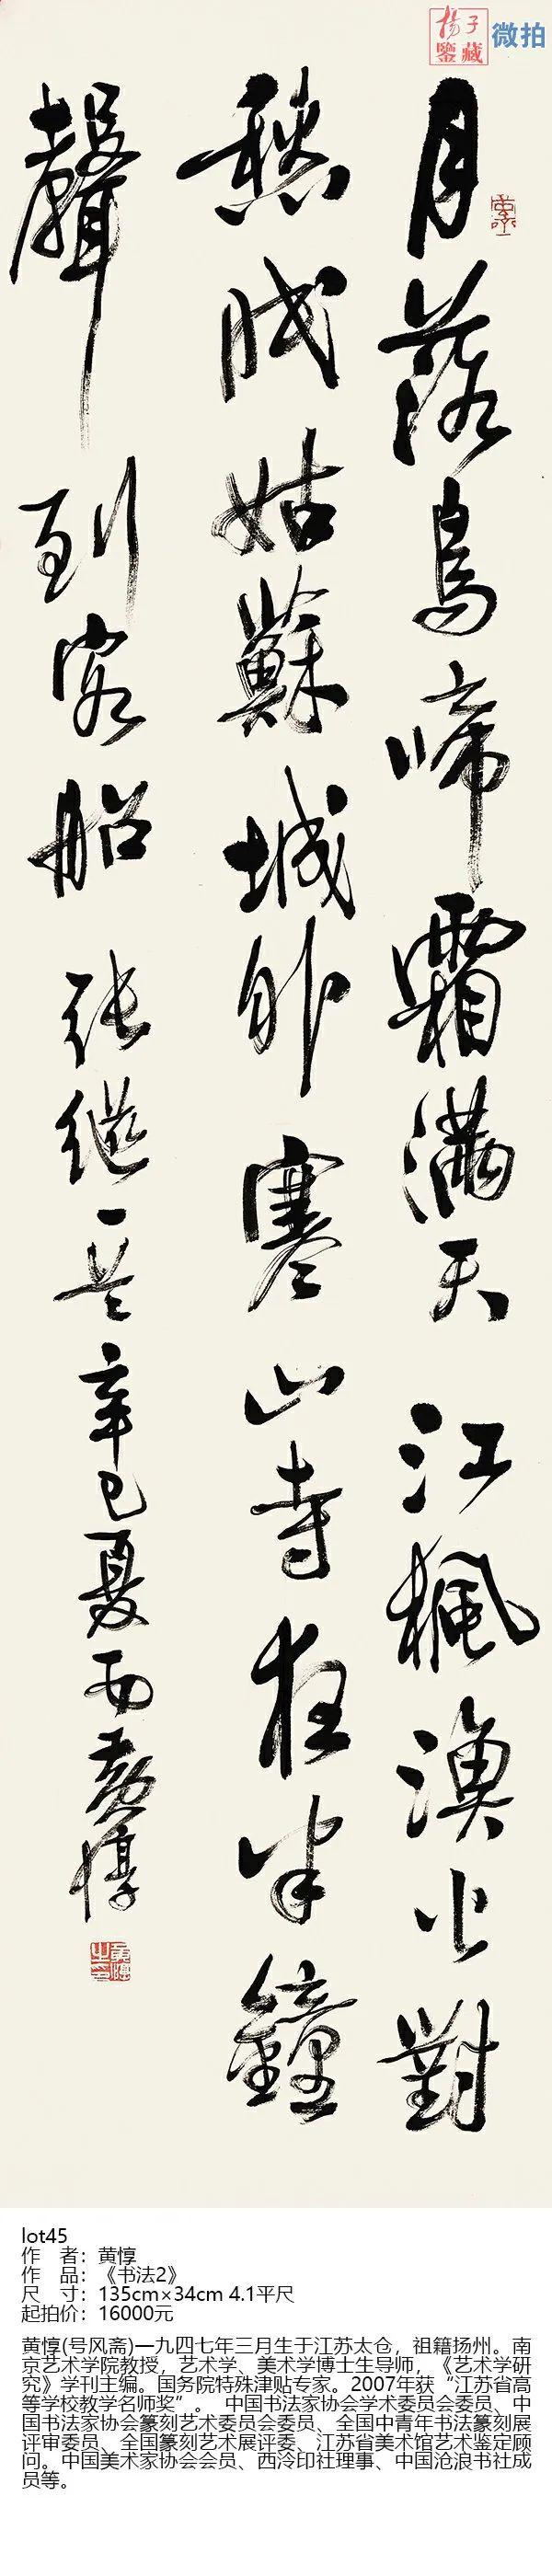 揚子
鑒藏
微拍
月落烏啼霜滿天江楓漁火對
愁眠姑蘇城外寒山寺夜半鐘
聲到客船 張繼 辛巳夏 黃惇
lot45
作 者：黄惇
作 品：《书法2》
尺 寸：135cm×34cm 4.1平尺
起拍价：16000元
黄惇(号风斋)一九四七年三月生于江苏太仓，祖籍扬州。南
京艺术学院教授，艺术学、美术学博士生导师，《艺术学研
究》学刊主编。国务院特殊津贴专家。2007年获“江苏省高
等学校教学名师奖”。 中国书法家协会学术委员会委员、中
国书法家协会篆刻艺术委员会委员、全国中青年书法篆刻展
评审委员、全国篆刻艺术展评委、江苏省美术馆艺术鉴定顾
问。中国美术家协会会员、西泠印社理事、中国沧浪书社成
员等。